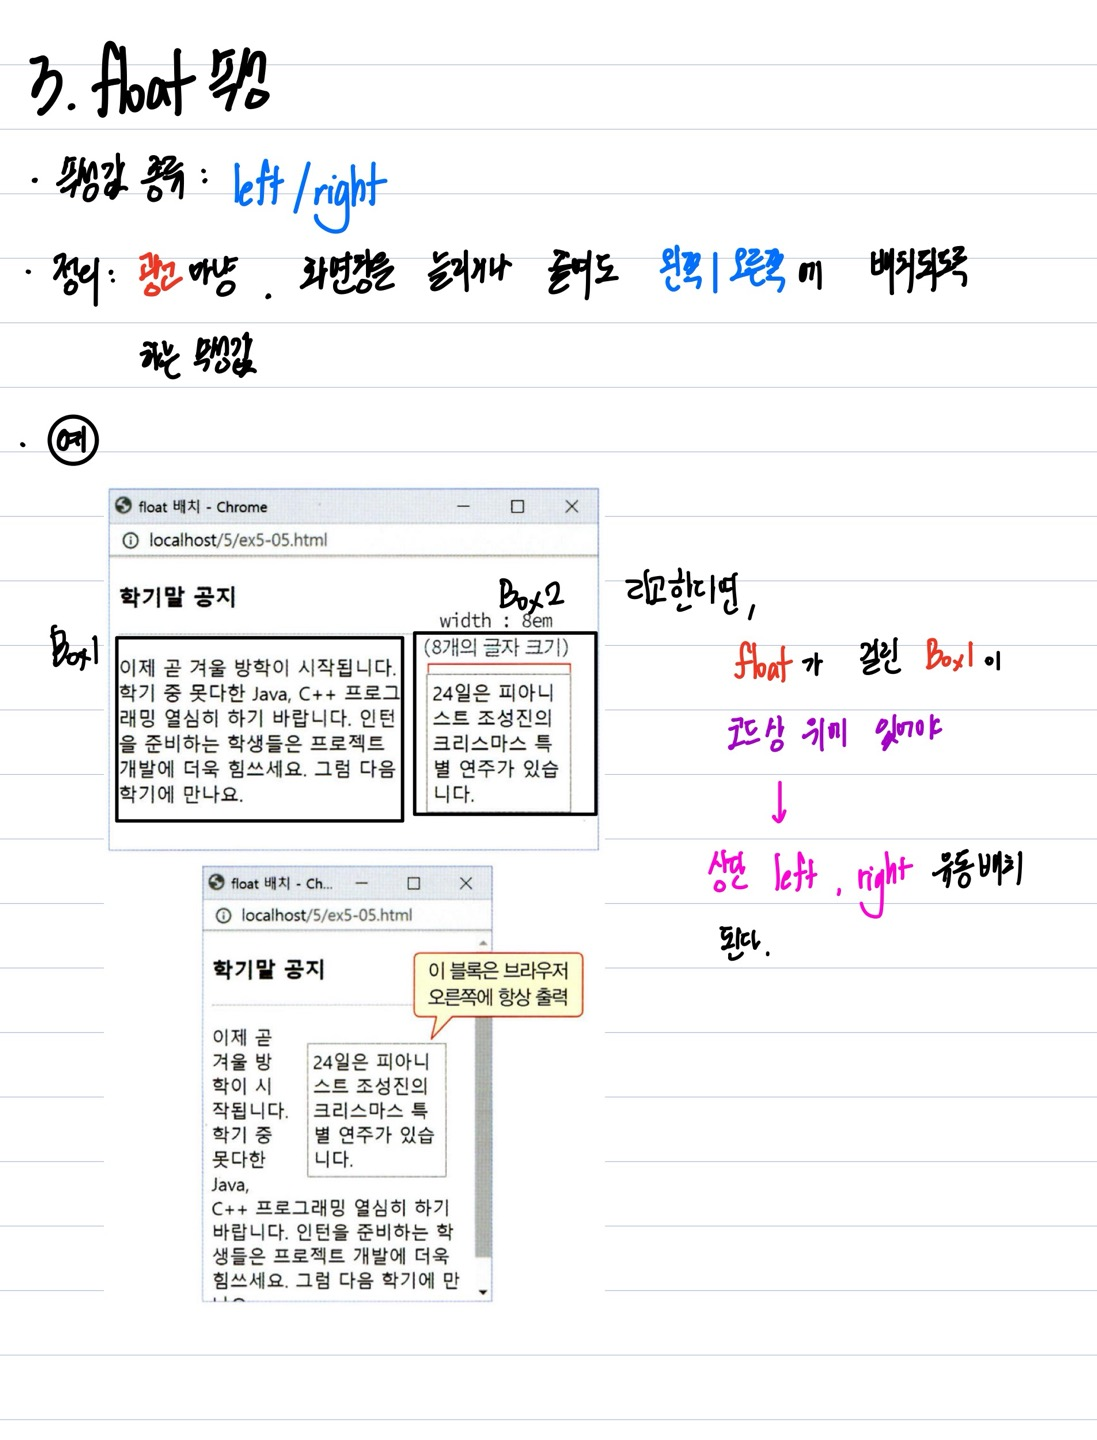 3. float 속성
· 속성값 종류 : left / right
· 정의 : 광고마냥 . 화면창을 늘리거나 줄여도 왼쪽 | 오른쪽에 배치되도록
하는 속성값
· 예
float 배치 - Chrome
localhost/5/ex5-05.html
학기말 공지
Box2
width : 8em
(8개의 글자 크기)
Box1
이제 곧 겨울 방학이 시작됩니다.
학기 중 못다한 Java, C++ 프로그
래밍 열심히 하기 바랍니다. 인턴
을 준비하는 학생들은 프로젝트
개발에 더욱 힘쓰세요. 그럼 다음
학기에 만나요.
24일은 피아니
스트 조성진의
크리스마스 특
별 연주가 있습
니다.
라고한다면,
float가 걸린 Box1이
코드상 위에 있어야
↓
상단 left , right 유동배치
된다.
float 배치 - Ch...
localhost/5/ex5-05.html
학기말 공지
이 블록은 브라우저
오른쪽에 항상 출력
이제 곧
겨울 방
학이 시
작됩니다.
학기 중
못다한
Java,
24일은 피아니
스트 조성진의
크리스마스 특
별 연주가 있습
니다.
C++ 프로그래밍 열심히 하기
바랍니다. 인턴을 준비하는 학
생들은 프로젝트 개발에 더욱
힘쓰세요. 그럼 다음 학기에 만